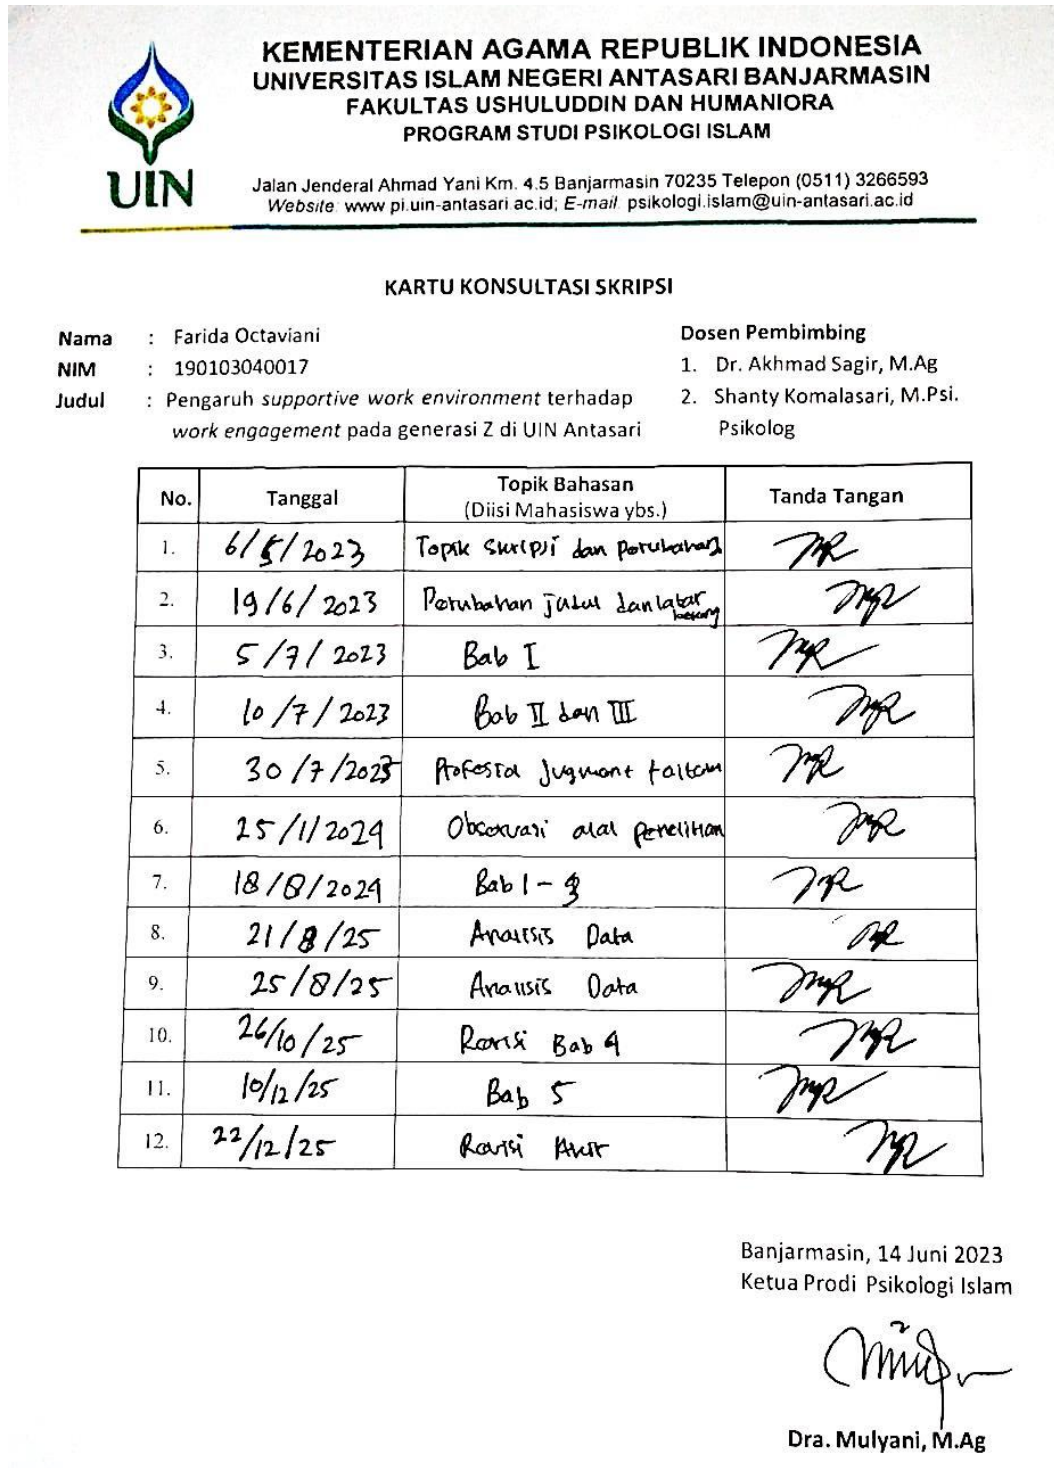 KEMENTERIAN AGAMA REPUBLIK INDONESIA
UNIVERSITAS ISLAM NEGERI ANTASARI BANJARMASIN
FAKULTAS USHULUDDIN DAN HUMANIORA
PROGRAM STUDI PSIKOLOGI ISLAM
UIN
Jalan Jenderal Ahmad Yani Km. 4.5 Banjarmasin 70235 Telepon (0511) 3266593
Website: www pi.uin-antasari.ac.id; E-mail: psikologi.islam@uin-antasari.ac.id
KARTU KONSULTASI SKRIPSI
Nama : Farida Octaviani
NIM : 190103040017
Judul : Pengaruh supportive work environment terhadap
work engagement pada generasi Z di UIN Antasari
Dosen Pembimbing
1. Dr. Akhmad Sagir, M.Ag
2. Shanty Komalasari, M.Psi.
Psikolog
No. Tanggal Topik Bahasan (Diisi Mahasiswa ybs.) Tanda Tangan
1. 6/5/2023 Topik skripsi dan perubahan
2. 19/6/2023 Perubahan judul dan latar belakang
3. 5/7/2023 Bab I
4. 10/7/2023 Bab II dan III
5. 30/7/2023
6. 25/1/2024 Observasi alat penelitian
7. 18/8/2024 Bab 1 - 3
8. 21/8/25 Analisis Data
9. 25/8/25 Analisis Data
10. 26/10/25 Revisi Bab 4
11. 10/12/25 Bab 5
12. 22/12/25 Revisi Akhir
Banjarmasin, 14 Juni 2023
Ketua Prodi Psikologi Islam
Dra. Mulyani, M.Ag